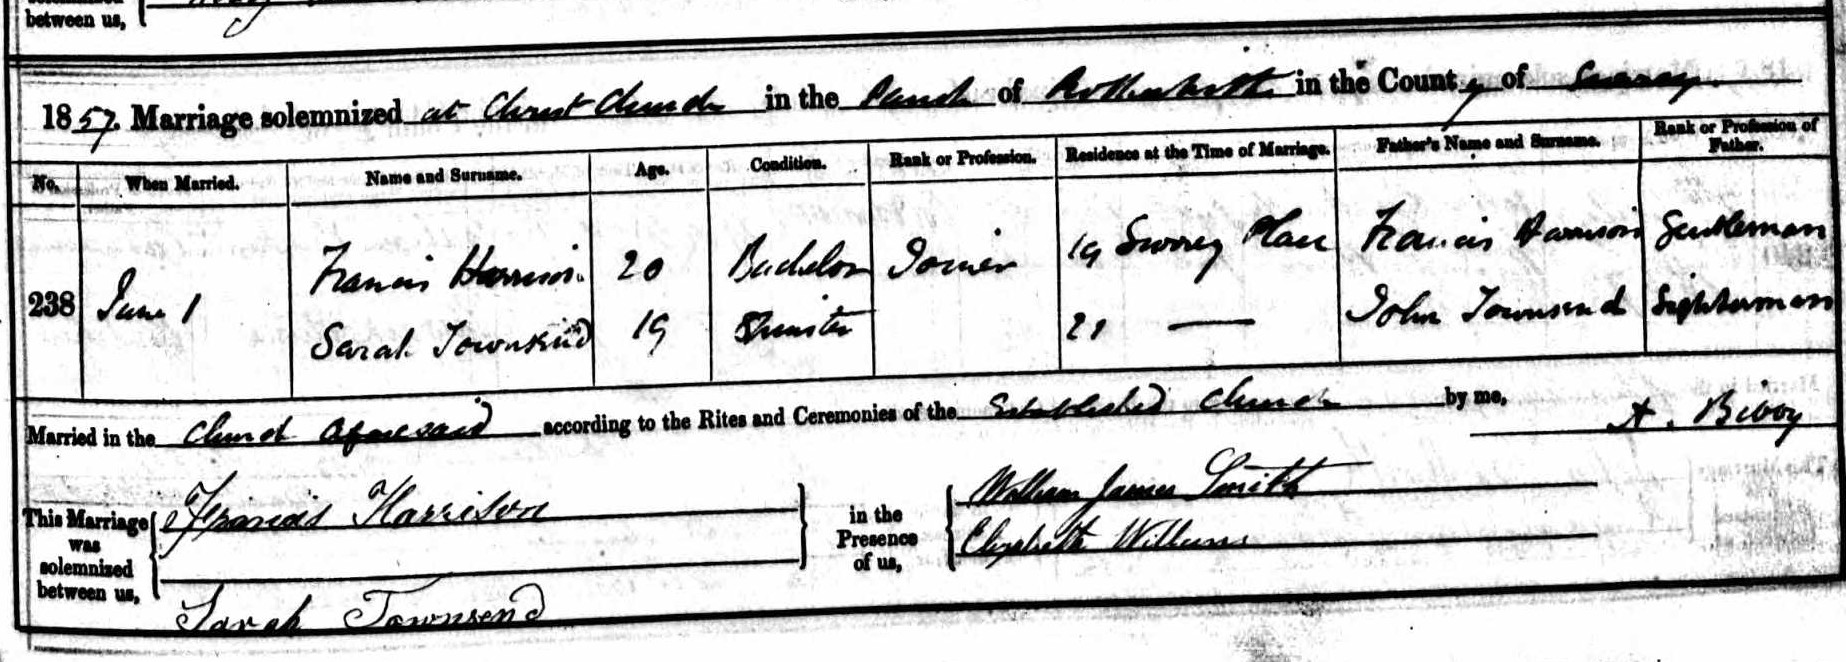 between us,
1857. Marriage solemnized at Christ Church in the Parish of Rotherhithe in the County of Surrey.
No. When Married. Name and Surname. Age. Condition. Rank or Profession. Residence at the Time of Marriage. Father's Name and Surname. Rank or Profession of Father.
Francis Harrison 20 Bachelor Joiner 19 Surrey Place Francis Harrison Gentleman
238 June 1
Sarah Townsend 19 Spinster 21 — John Townsend Lighterman
Married in the Church aforesaid according to the Rites and Ceremonies of the Established Church by me, A. Bibby
This Marriage was solemnized between us, Francis Harrison
Sarah Townsend
in the Presence of us, William James Smith
Elizabeth Williams